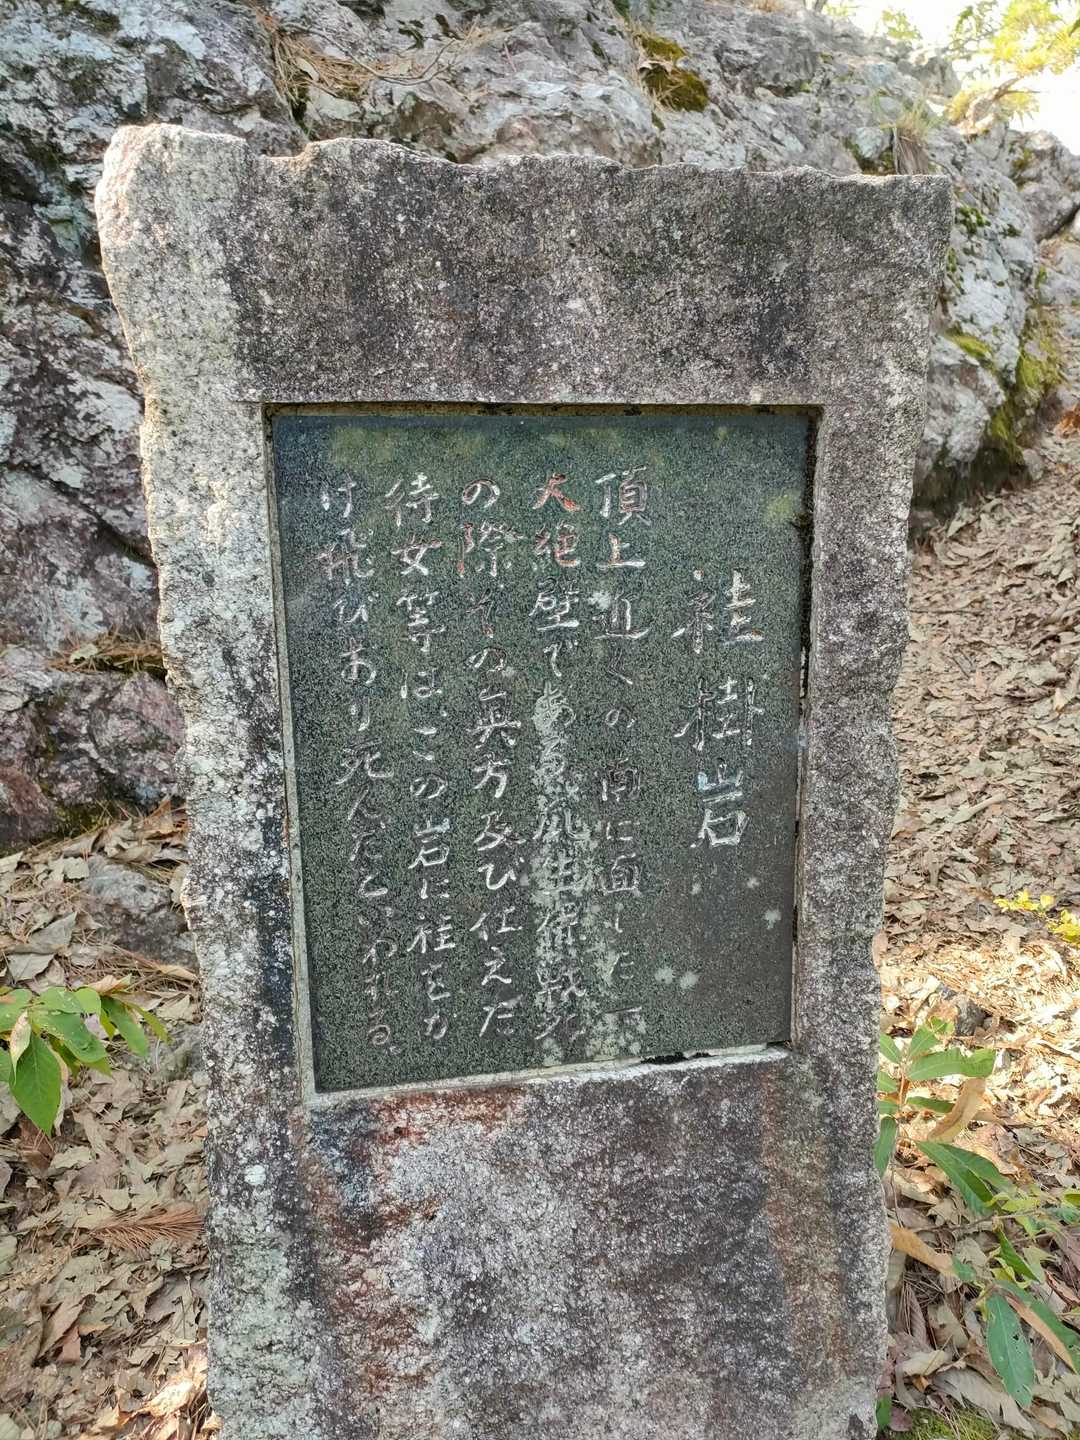 袿掛岩
頂上近くの南に面した一
大絶壁である風生保戦死
の際その奥方及び仕えた
待女等は、この岩に袿をか
け飛びあり死んだといわれる。